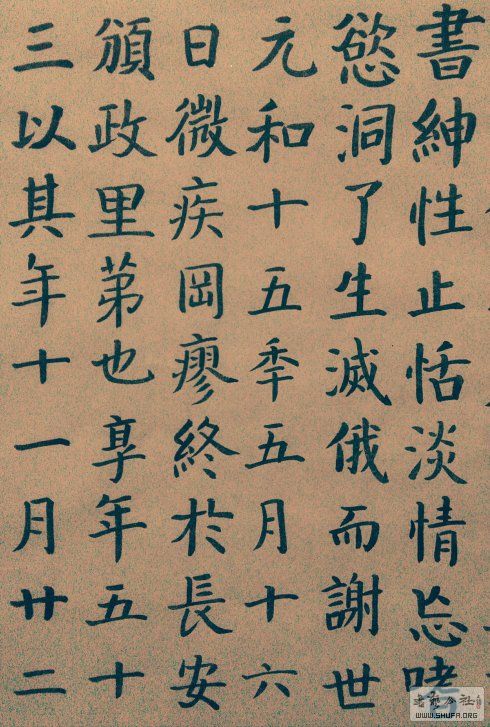 書紳性止恬淡情忘嗜
慾洞了生滅俄而謝世
元和十五年五月十六
日微疾罔瘳終於長安
頒政里第也享年五十
三以其年十一月廿二
WWW.SHUFA.ORG